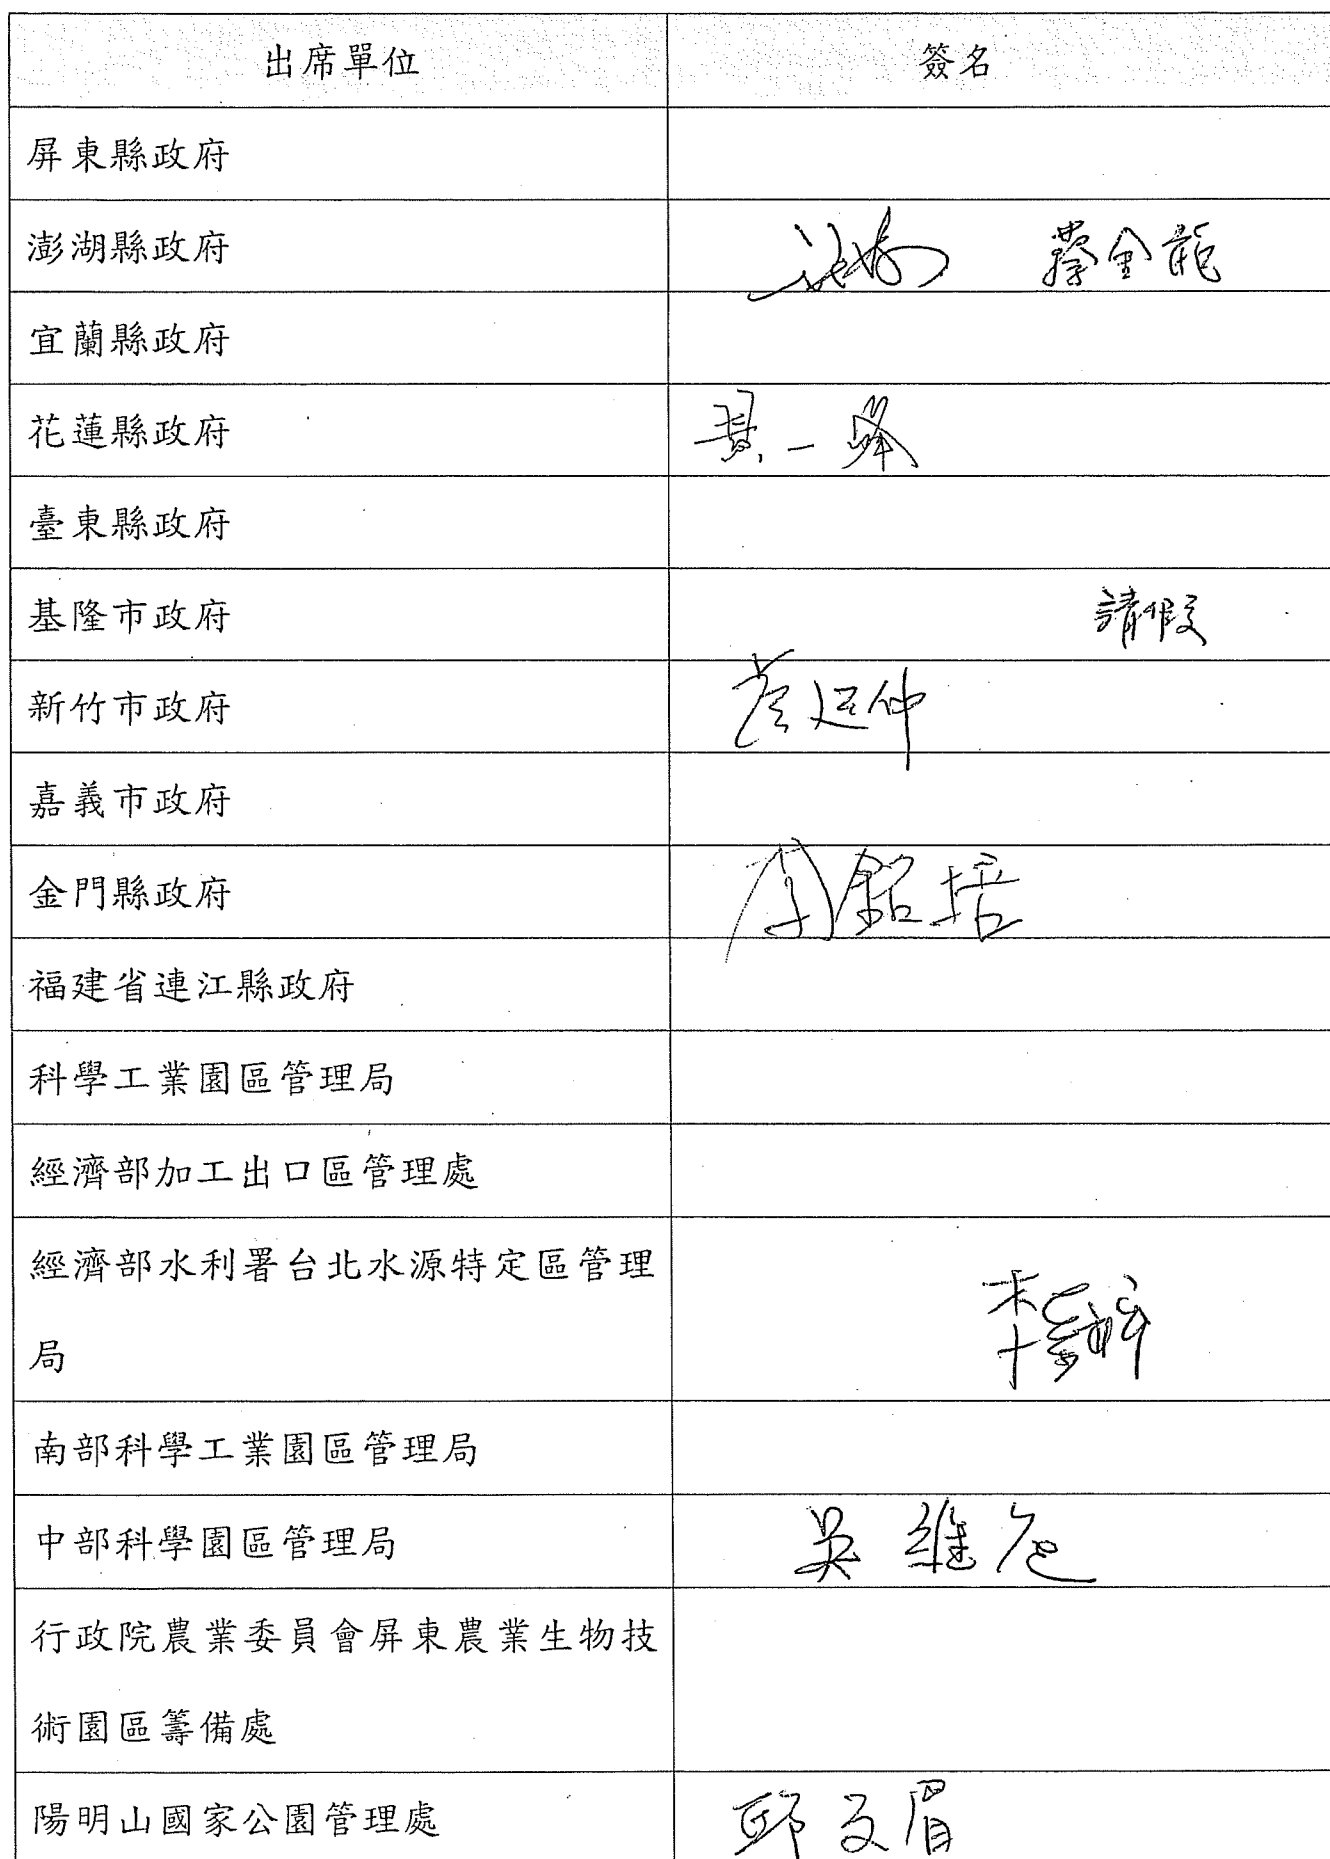 出席單位 簽名
屏東縣政府
澎湖縣政府 蔡金龍
宜蘭縣政府
花蓮縣政府 黃一峰
臺東縣政府
基隆市政府 請假
新竹市政府
嘉義市政府
金門縣政府 李銘培
福建省連江縣政府
科學工業園區管理局
經濟部加工出口區管理處
經濟部水利署台北水源特定區管理
局
南部科學工業園區管理局
中部科學園區管理局 吳維
行政院農業委員會屏東農業生物技
術園區籌備處
陽明山國家公園管理處 邱文眉